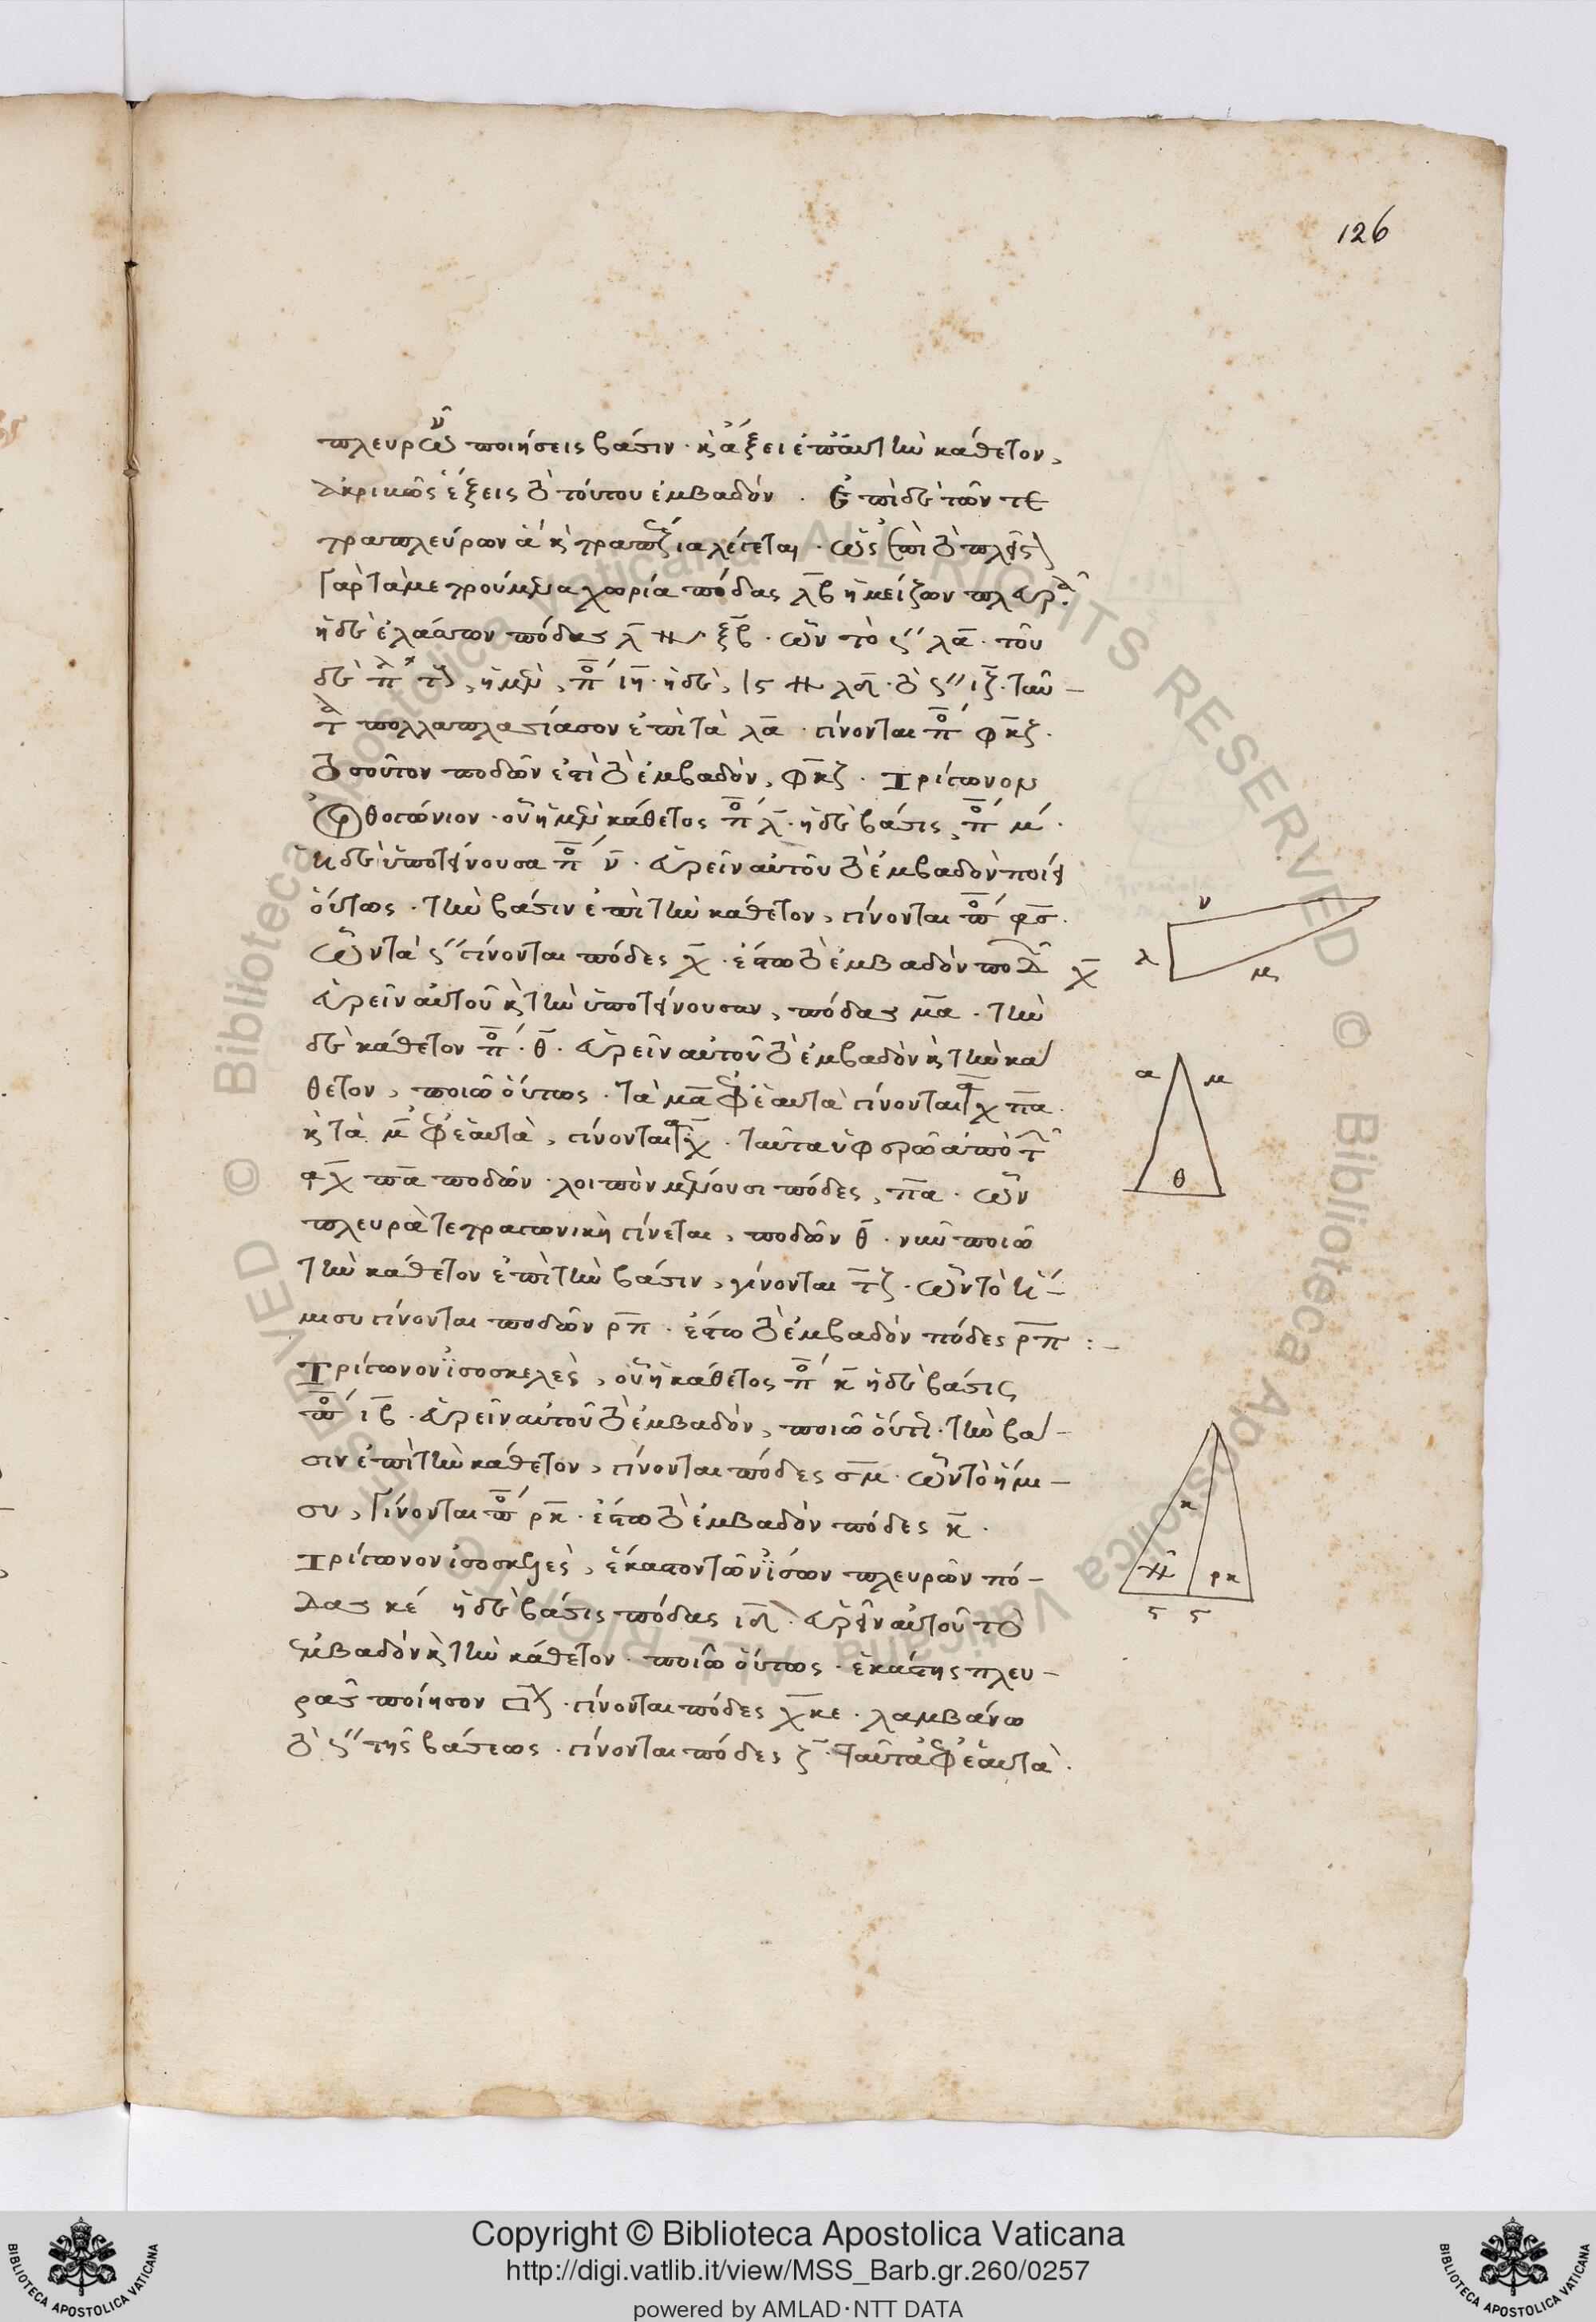 126
πλευρῶν ποιήσεις βάσιν · κ ἄξει ἐπ αὐτὴν κάθετον,
ἀκριβῶς ἕξεις τὸ τούτου ἐμβαδόν · Ἐπὶ δὲ τῶν τε
τραπλεύρων ἃ κ τραπέζια λέγεται · ὡς ἐπὶ τὸ πλεῖς
γὰρ τὰ μετρούμενα χωρία πόδας λβ ἡ μείζων πλευρὰ
ἡ δὲ ἐλάττων πόδας λ ξβ · ὧν τὸ ς΄΄ λα · τοῦ
δὲ π ἡ μὲν, π ιη · ἡ δὲ, ις λδ · τὸ ς΄΄ ιζ · ταῦ-
τα πολλαπλασίασον ἐπὶ τὰ λα · γίνονται π φκζ ·
τοσούτον ποδῶν ἐστὶ τὸ ἐμβαδὸν, φκζ · Τρίγωνον
ὀρθογώνιον · οὗ ἡ μὲν κάθετος π λ · ἡ δὲ βάσις, π μ ·
ἡ δὲ ὑποτείνουσα π ν · εὑρεῖν αὐτοῦ τὸ ἐμβαδὸν ποίει
οὕτως · τὴν βάσιν ἐπὶ τὴν κάθετον, γίνονται π ͵ασ ·
ὧν τὰ ς΄΄ γίνονται πόδες χ · ἔστω τὸ ἐμβαδὸν ποδῶν χ
εὑρεῖν αὐτοῦ κ τὴν ὑποτείνουσαν, πόδας μα · τὴν
δὲ κάθετον π · θ · εὑρεῖν αὐτοῦ τὸ ἐμβαδὸν κ τὴν κά
θετον, ποιῶ οὕτως · τὰ μα ἐφ ἑαυτὰ γίνονται ͵αχπα ·
κ τὰ μ ἐφ ἑαυτὰ, γίνονται ͵αχ · ταῦτα ὑφορῶ ἀπὸ τῶν
͵αχ πα ποδῶν · λοιπὸν μένουσι πόδες, πα · ὧν
πλευρὰ τετραγωνικὴ γίνεται, ποδῶν θ · νῦν ποιῶ
τὴν κάθετον ἐπὶ τὴν βάσιν, γίνονται τξ · ὧν τὸ ἥ-
μισυ γίνονται ποδῶν ρπ · ἔστω τὸ ἐμβαδὸν πόδες ρπ :-
Τρίγωνον ἰσοσκελὲς, οὗ ἡ κάθετος π κ ἡ δὲ βάσις
π ιβ · εὑρεῖν αὐτοῦ τὸ ἐμβαδὸν, ποιῶ οὕτως · τὴν βά-
σιν ἐπὶ τὴν κάθετον, γίνονται πόδες σμ · ὧν τὸ ἥμι-
συ, γίνονται π ρκ · ἔστω τὸ ἐμβαδὸν πόδες κ ·
Τρίγωνον ἰσοσκελὲς, ἑκάστον τῶν ἴσων πλευρῶν πό-
δας κέ ἡ δὲ βάσις πόδας ιδ · εὑρεῖν αὐτοῦ τὸ
ἐμβαδὸν κ τὴν κάθετον · ποιῶ οὕτως · ἑκάστης πλευ-
ρᾶς ποίησον · γίνονται πόδες χκε · λαμβάνω
τὸ ς΄΄ τῆς βάσεως · γίνονται πόδες ζ · ταῦτα ἐφ ἑαυτὰ ·
ν
λ
μ
α
μ
θ
κ
ρκ
ς ς
Copyright © Biblioteca Apostolica Vaticana
http://digi.vatlib.it/view/MSS_Barb.gr.260/0257
powered by AMLAD·NTT DATA